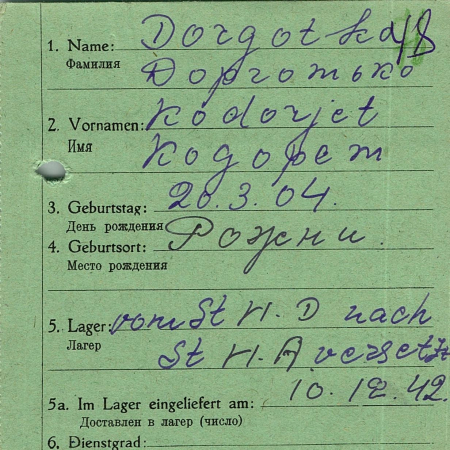 1. Name: Dorgotka
Фамилия Дорготько
2. Vornamen: Kodorjet
Имя Кодорет
3. Geburtstag: 20.3.04.
День рождения
4. Geburtsort: Рожни.
Место рождения
5. Lager: vom St VI. D nach
Лагер St VI. A versetzt
10.12.42.
5a. Im Lager eingeliefert am:
Доставлен в лагер (число)
6. Dienstgrad: